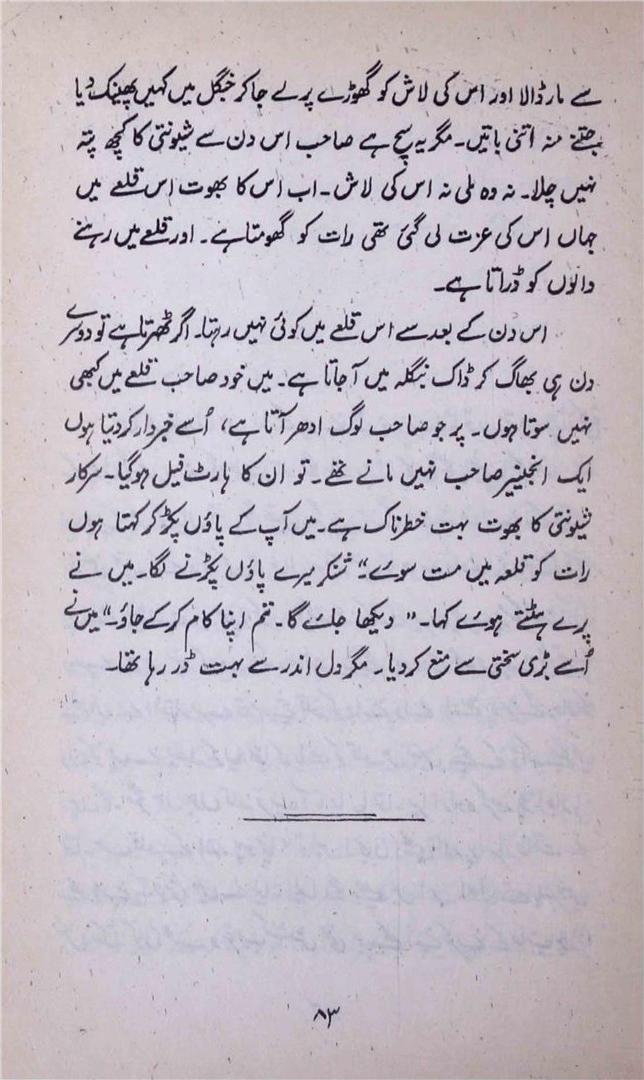 سے مار ڈالا اور اس کی لاش کو گھوڑے پر لے جا کر جنگل میں کہیں پھینک دیا
جتنے منہ اتنی باتیں۔ مگر یہ سچ ہے صاحب اس دن سے شیونتی کا کچھ پتہ
نہیں چلا۔ نہ وہ ملی نہ اس کی لاش۔ اب اس کا بھوت اس قلعے میں
جہاں اس کی عزت لی گئی تھی رات کو گھومتا ہے۔ اور قلعے میں رہنے
والوں کو ڈراتا ہے۔
اس دن کے بعد سے اس قلعے میں کوئی نہیں رہتا۔ اگر ٹھہرتا ہے تو دوسرے
دن ہی بھاگ کر ڈاک بنگلہ میں آجاتا ہے۔ میں خود صاحب قلعے میں کبھی
نہیں سوتا ہوں۔ پر جو صاحب لوگ ادھر آتا ہے، اُسے خبردار کر دیتا ہوں
ایک انجینیر صاحب نہیں مانے تھے۔ تو ان کا ہارٹ فیل ہوگیا۔ سرکار
شیونتی کا بھوت بہت خطرناک ہے۔ میں آپ کے پاؤں پکڑ کر کہتا ہوں
رات کو قلعہ میں مت سوئے۔" شنکر میرے پاؤں پکڑنے لگا۔ میں نے
پرے ہٹتے ہوئے کہا۔ "دیکھا جائے گا۔ تم اپنا کام کر کے جاؤ۔" میں نے
اُسے بڑی سختی سے منع کر دیا۔ مگر دل اندر سے بہت ڈر رہا تھا۔
۸۳